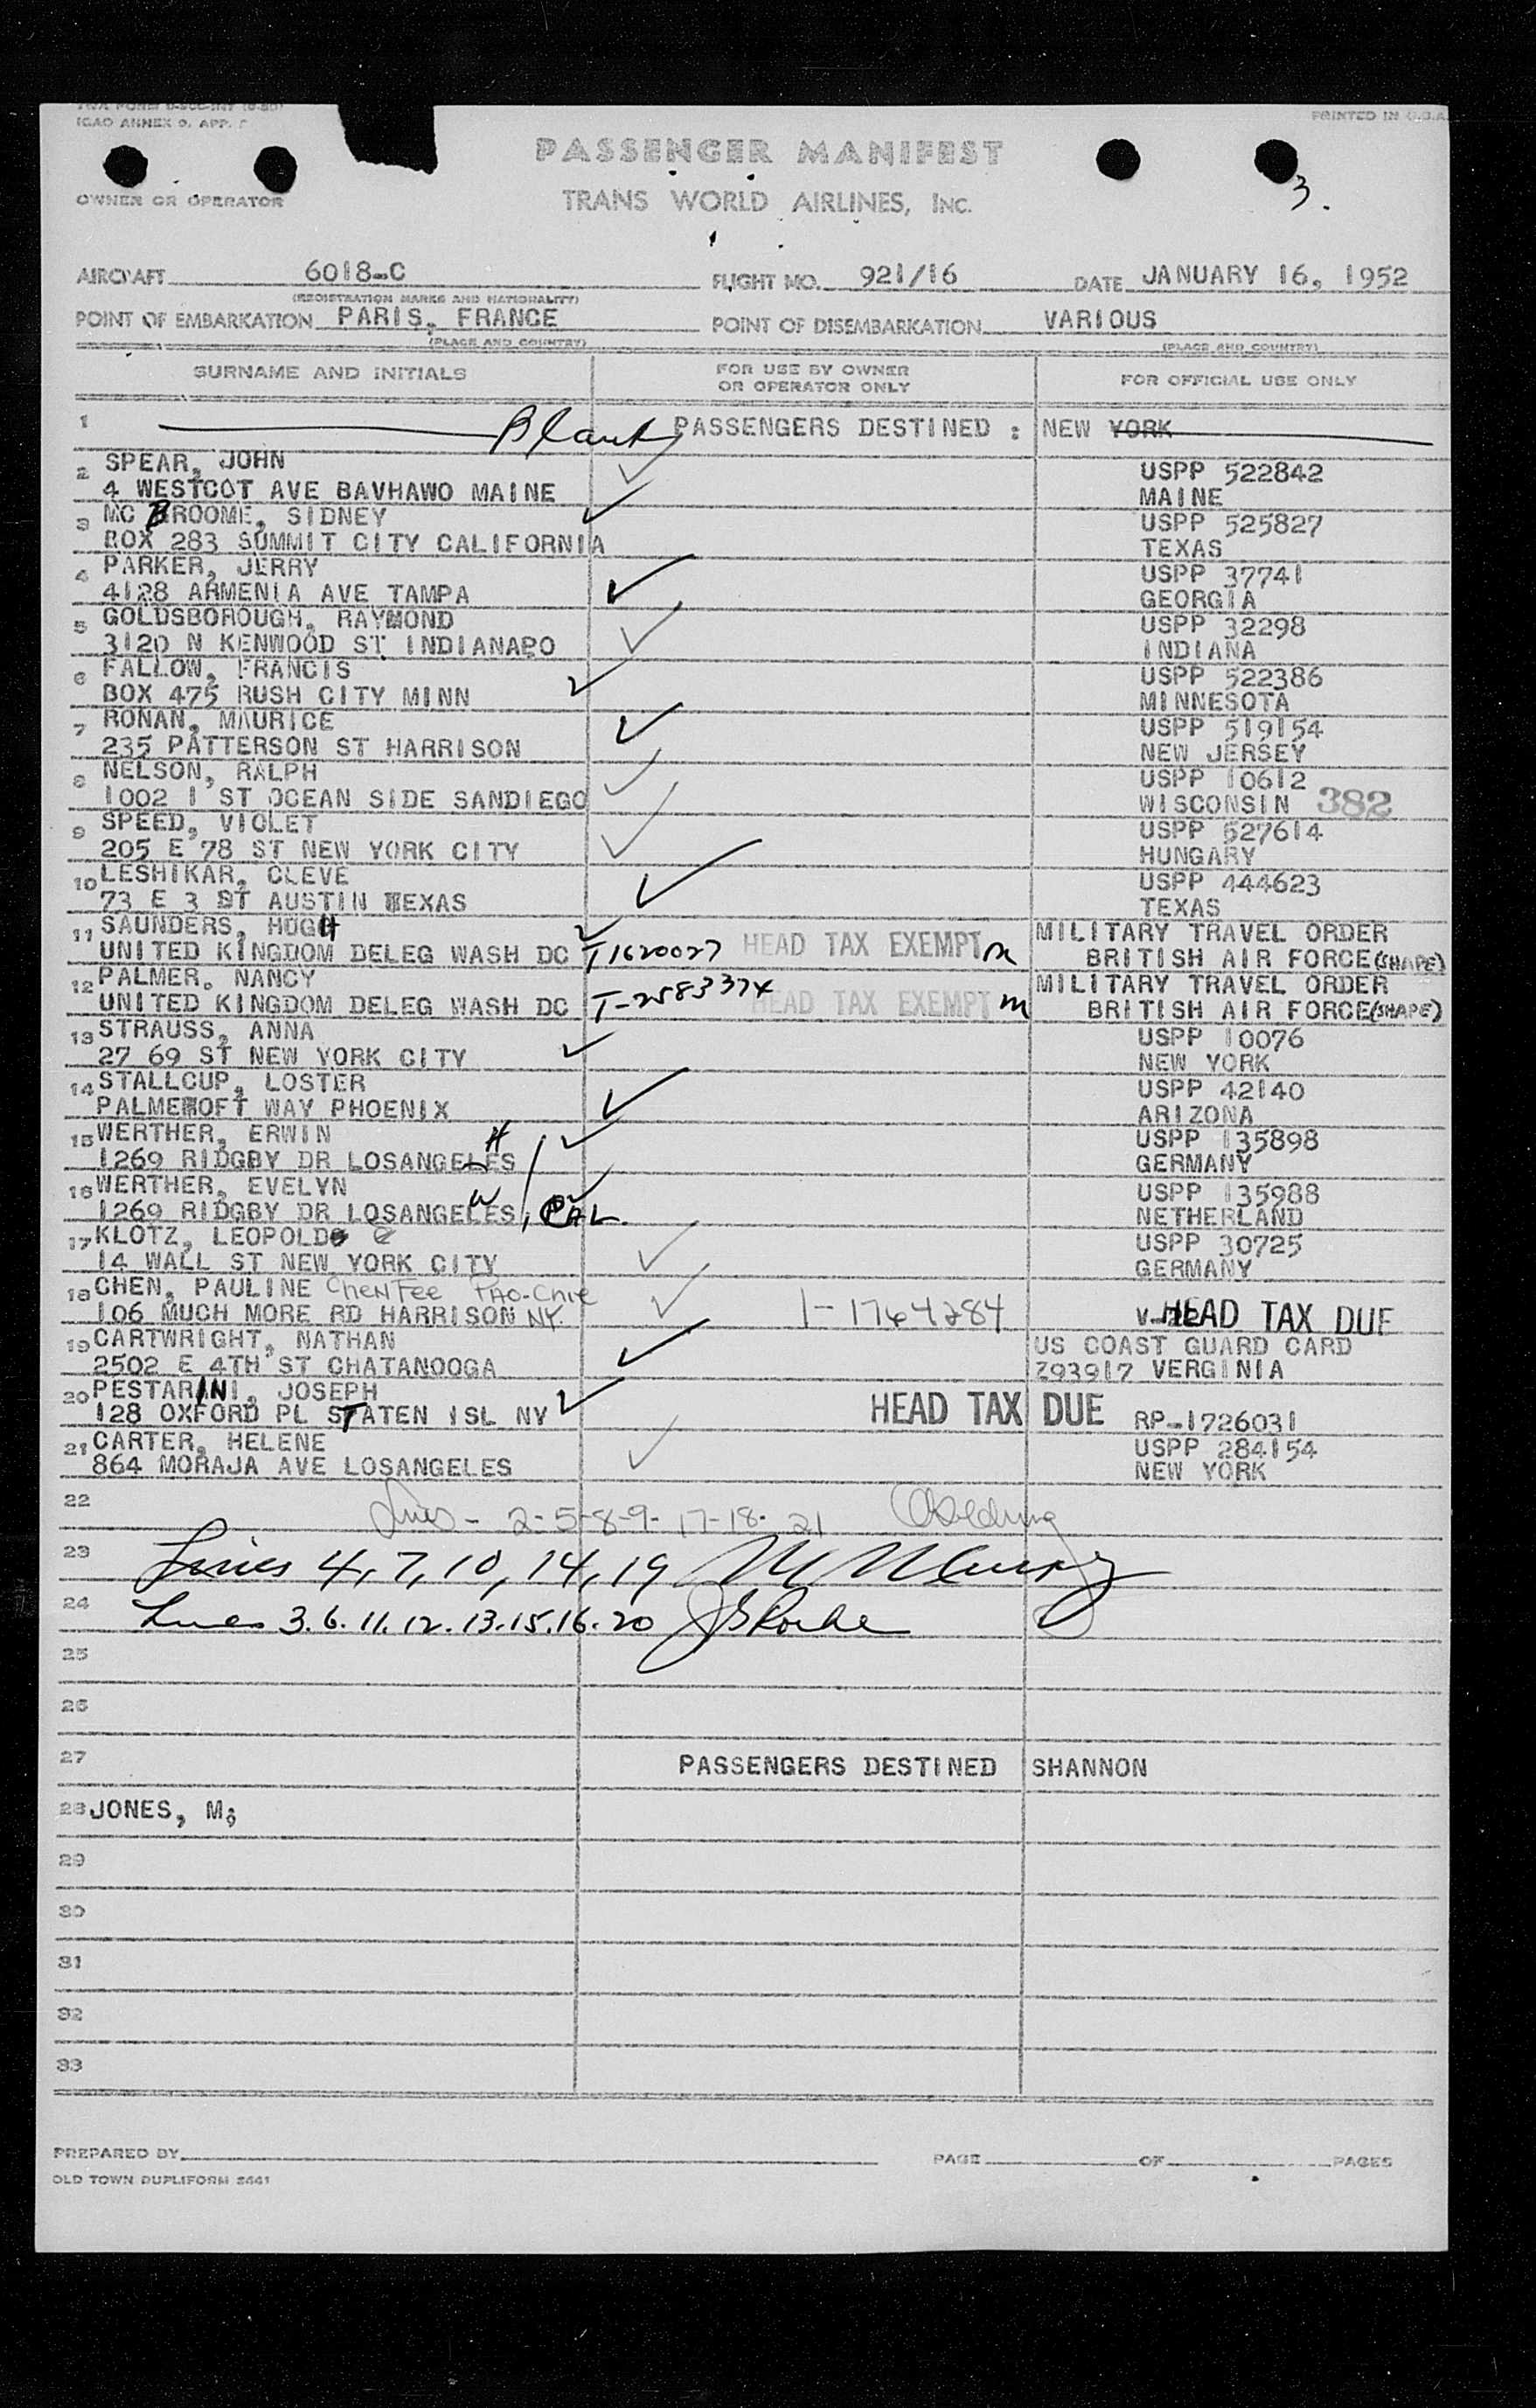 TWA FORM
ICAO ANNEX 9, APP.
PRINTED IN U.S.A.
PASSENGER MANIFEST
OWNER OR OPERATOR
TRANS WORLD AIRLINES, INC.
3.
AIRCRAFT 6018-C FLIGHT NO. 921/16 DATE JANUARY 16, 1952
(REGISTRATION MARKS AND NATIONALITY)
POINT OF EMBARKATION PARIS, FRANCE POINT OF DISEMBARKATION VARIOUS
(PLACE AND COUNTRY) (PLACE AND COUNTRY)
SURNAME AND INITIALS FOR USE BY OWNER OR OPERATOR ONLY FOR OFFICIAL USE ONLY
1 Blank PASSENGERS DESTINED : NEW YORK
2 SPEAR, JOHN USPP 522842
4 WESTCOT AVE BAVHAWO MAINE MAINE
3 MC BROOME, SIDNEY USPP 525827
BOX 283 SUMMIT CITY CALIFORNIA TEXAS
4 PARKER, JERRY USPP 37741
4128 ARMENIA AVE TAMPA GEORGIA
5 GOLDSBOROUGH, RAYMOND USPP 32298
3120 N KENWOOD ST INDIANAPO INDIANA
6 FALLOW, FRANCIS USPP 522386
BOX 475 RUSH CITY MINN MINNESOTA
7 RONAN, MAURICE USPP 519154
235 PATTERSON ST HARRISON NEW JERSEY
8 NELSON, RALPH USPP 10612
1002 1 ST OCEAN SIDE SANDIEGO WISCONSIN 382
9 SPEED, VIOLET USPP 527614
205 E 78 ST NEW YORK CITY HUNGARY
10 LESHIKAR, CLEVE USPP 444623
73 E 3 ST AUSTIN TEXAS TEXAS
11 SAUNDERS, HUGH MILITARY TRAVEL ORDER
UNITED KINGDOM DELEG WASH DC T1620027 HEAD TAX EXEMPT m BRITISH AIR FORCE (SHAPE)
12 PALMER, NANCY MILITARY TRAVEL ORDER
UNITED KINGDOM DELEG WASH DC T-2583374 HEAD TAX EXEMPT m BRITISH AIR FORCE (SHAPE)
13 STRAUSS, ANNA USPP 10076
27 69 ST NEW YORK CITY NEW YORK
14 STALLCUP, LOSTER USPP 42140
PALMEROFT WAY PHOENIX ARIZONA
15 WERTHER, ERWIN H USPP 135898
1269 RIDGBY DR LOSANGELES GERMANY
16 WERTHER, EVELYN W USPP 135988
1269 RIDGBY DR LOSANGELES, CAL. NETHERLAND
17 KLOTZ, LEOPOLD USPP 30725
14 WALL ST NEW YORK CITY GERMANY
18 CHEN, PAULINE Chen Fee Tao-Chie
106 MUCH MORE RD HARRISON NY. 1-1764284 HEAD TAX DUE
19 CARTWRIGHT, NATHAN US COAST GUARD CARD
2502 E 4TH ST CHATANOOGA Z93917 VERGINIA
20 PESTARINI, JOSEPH
128 OXFORD PL STATEN ISL NY HEAD TAX DUE RP-1726031
21 CARTER, HELENE USPP 284154
864 MORAJA AVE LOSANGELES NEW YORK
22 Lines - 2-5-8-9-17-18-21
23 Lines 4, 7, 10, 14, 19
24 Lines 3.6.11.12.13.15.16.20
25
26
27 PASSENGERS DESTINED SHANNON
28 JONES, M;
29
30
31
32
33
PREPARED BY PAGE OF PAGES
OLD TOWN DUPLIFORM 8441